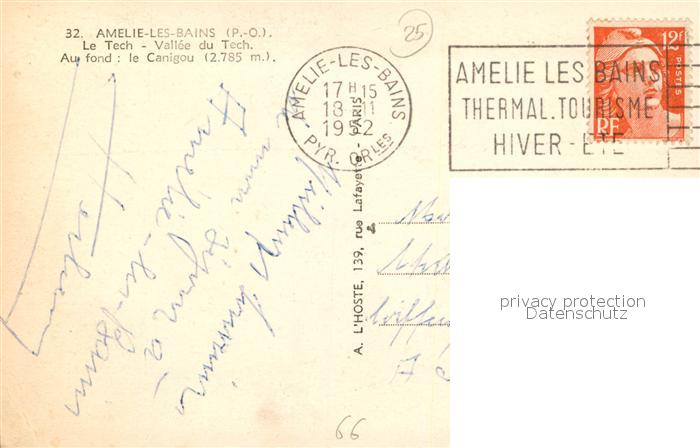 32. AMELIE-LES-BAINS (P.-O.).
Le Tech - Vallée du Tech.
Au fond : le Canigou (2.785 m.).
25
AMELIE-LES-BAINS
17 H 15
18 - 11
1952
PYR. ORLES
AMELIE LES BAINS
THERMAL.TOURISME
HIVER - ETE
12F
POSTES
RF
A. L'HOSTE, 139, rue Lafayette - PARIS
Meilleur souvenir
mon séjour à
Amélie-les-Bains
privacy protection
Datenschutz
66